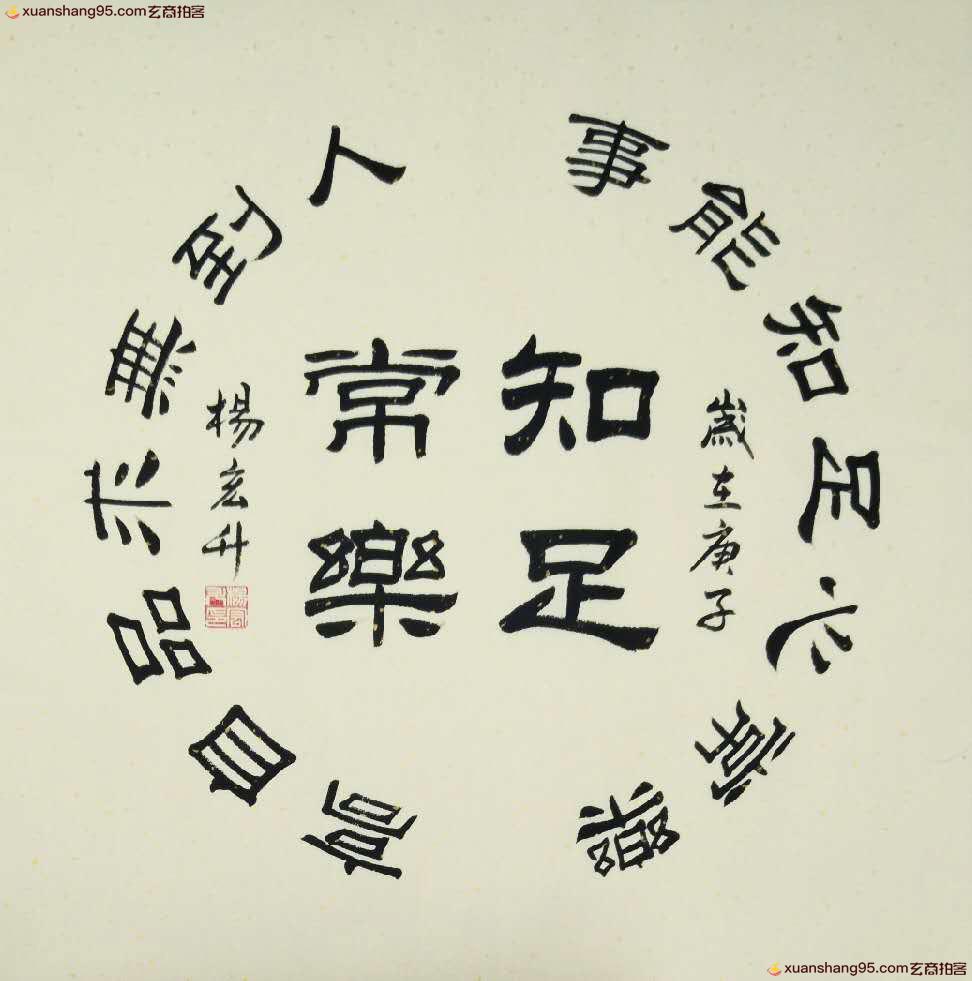 xuanshang95.com玄商拍客
事能知足心常樂
人到無求品自高
知足
常樂
歲在庚子
楊宏升
xuanshang95.com玄商拍客